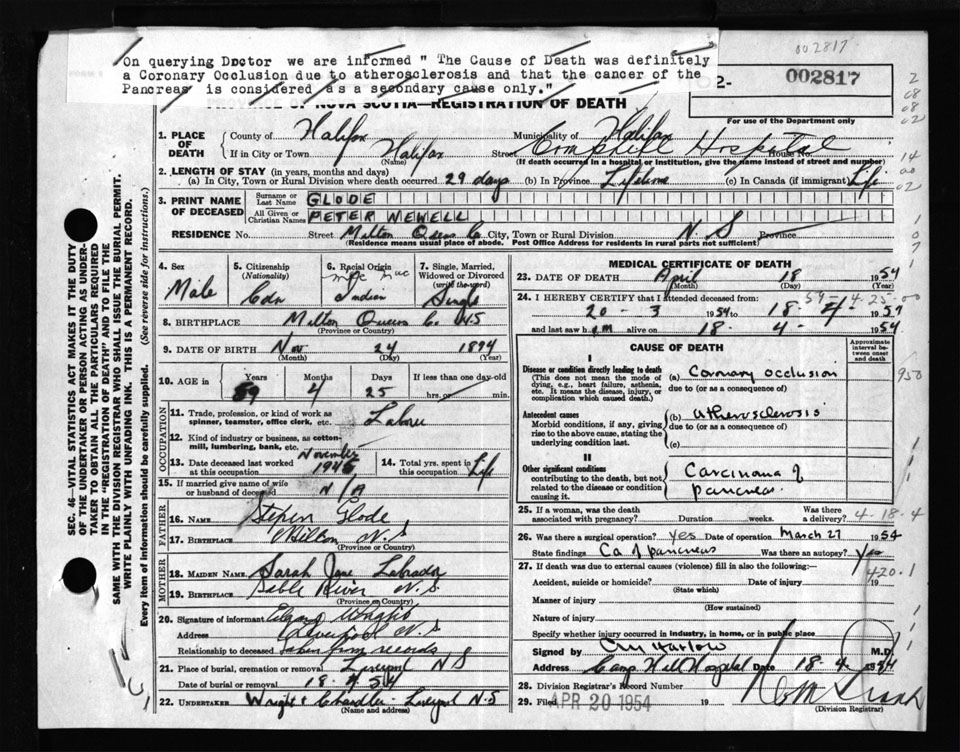 002817
On querying Doctor we are informed " The Cause of Death was definitely
a Coronary Occlusion due to atherosclerosis and that the cancer of the
Pancreas is considered as a secondary cause only."
002817
For use of the Department only
PROVINCE OF NOVA SCOTIA—REGISTRATION OF DEATH
1. PLACE OF DEATH County of Halifax Municipality of Halifax
If in City or Town Halifax (Name) Street Camp Hill Hospital House No.
(If death occurred in a hospital or institution, give the name instead of street and number)
2. LENGTH OF STAY (in years, months and days)
(a) In City, Town or Rural Division where death occurred 29 days (b) In Province Lifetime (c) In Canada (if immigrant) Life
3. PRINT NAME OF DECEASED Surname or Last Name GLODE
All Given or Christian Names PETER NEWELL
RESIDENCE No. Street Milton Queens Co City, Town or Rural Division N S Province
(Residence means usual place of abode. Post Office Address for residents in rural parts not sufficient)
4. Sex Male
5. Citizenship (Nationality) Cdn
6. Racial Origin Mic Mac Indian
7. Single, Married, Widowed or Divorced (write the word) Single
8. BIRTHPLACE Milton Queens Co. N.S
(Province or Country)
9. DATE OF BIRTH Nov (Month) 24 (Day) 1894 (Year)
10. AGE in Years 59 Months 4 Days 25 If less than one day old hrs. or min.
OCCUPATION
11. Trade, profession, or kind of work as spinner, teamster, office clerk, etc. Laborer
12. Kind of industry or business, as cotton-mill, lumbering, bank, etc.
13. Date deceased last worked at this occupation November 1945
14. Total yrs. spent in this occupation Life
15. If married give name of wife or husband of deceased N/A
FATHER
16. NAME Stephen Glode
17. BIRTHPLACE Milton N.S
(Province or Country)
MOTHER
18. MAIDEN NAME Sarah Jane Labrador
19. BIRTHPLACE Sable River N.S.
(Province or Country)
20. Signature of informant Wright
Address Liverpool N.S
Relationship to deceased taken from records
21. Place of burial, cremation or removal Liverpool N S
Date of burial or removal 18.4.54
22. UNDERTAKER Wright & Chandler Liverpool N-S
(Name and address)
MEDICAL CERTIFICATE OF DEATH
23. DATE OF DEATH April (Month) 18 (Day) 1954 (Year)
24. I HEREBY CERTIFY that I attended deceased from:
20 - 3 1954 to 18 - 4 - 1954
and last saw him alive on 18 - 4 - 1954
CAUSE OF DEATH
Approximate interval between onset and death
I
Disease or condition directly leading to death
(This does not mean the mode of dying, e.g., heart failure, asthenia, etc. It means the disease, injury, or complication which caused death.)
(a) Coronary occlusion
due to (or as a consequence of)
Antecedent causes
Morbid conditions, if any, giving rise to the above cause, stating the underlying condition last.
(b) atherosclerosis
due to (or as a consequence of)
(c)
II
Other significant conditions
contributing to the death, but not related to the disease or condition causing it.
Carcinoma of
pancreas.
25. If a woman, was the death associated with pregnancy? Duration weeks. Was there a delivery?
4-18-4
26. Was there surgical operation? Yes Date of operation March 27 1954
State findings Ca of pancreas Was there an autopsy? Yes
27. If death was due to external causes (violence) fill in also the following:—
420.1
Accident, suicide or homicide? Date of injury 19
(State which)
Manner of injury
(How sustained)
Nature of injury
Specify whether injury occurred in industry, in home, or in public place
Signed by Harlow M.D.
Address Camp Hill Hospital Date 18.4.1954
28. Division Registrar's Record Number
29. Filed APR 20 1954 19
(Division Registrar)
SEC. 46—VITAL STATISTICS ACT MAKES IT THE DUTY
OF THE UNDERTAKER OR PERSON ACTING AS UNDER-
TAKER TO OBTAIN ALL THE PARTICULARS REQUIRED
IN THE "REGISTRATION OF DEATH" AND TO FILE THE
SAME WITH THE DIVISION REGISTRAR WHO SHALL ISSUE THE BURIAL PERMIT.
WRITE PLAINLY WITH UNFADING INK. THIS IS A PERMANENT RECORD.
Every item of information should be carefully supplied. (See reverse side for instructions.)